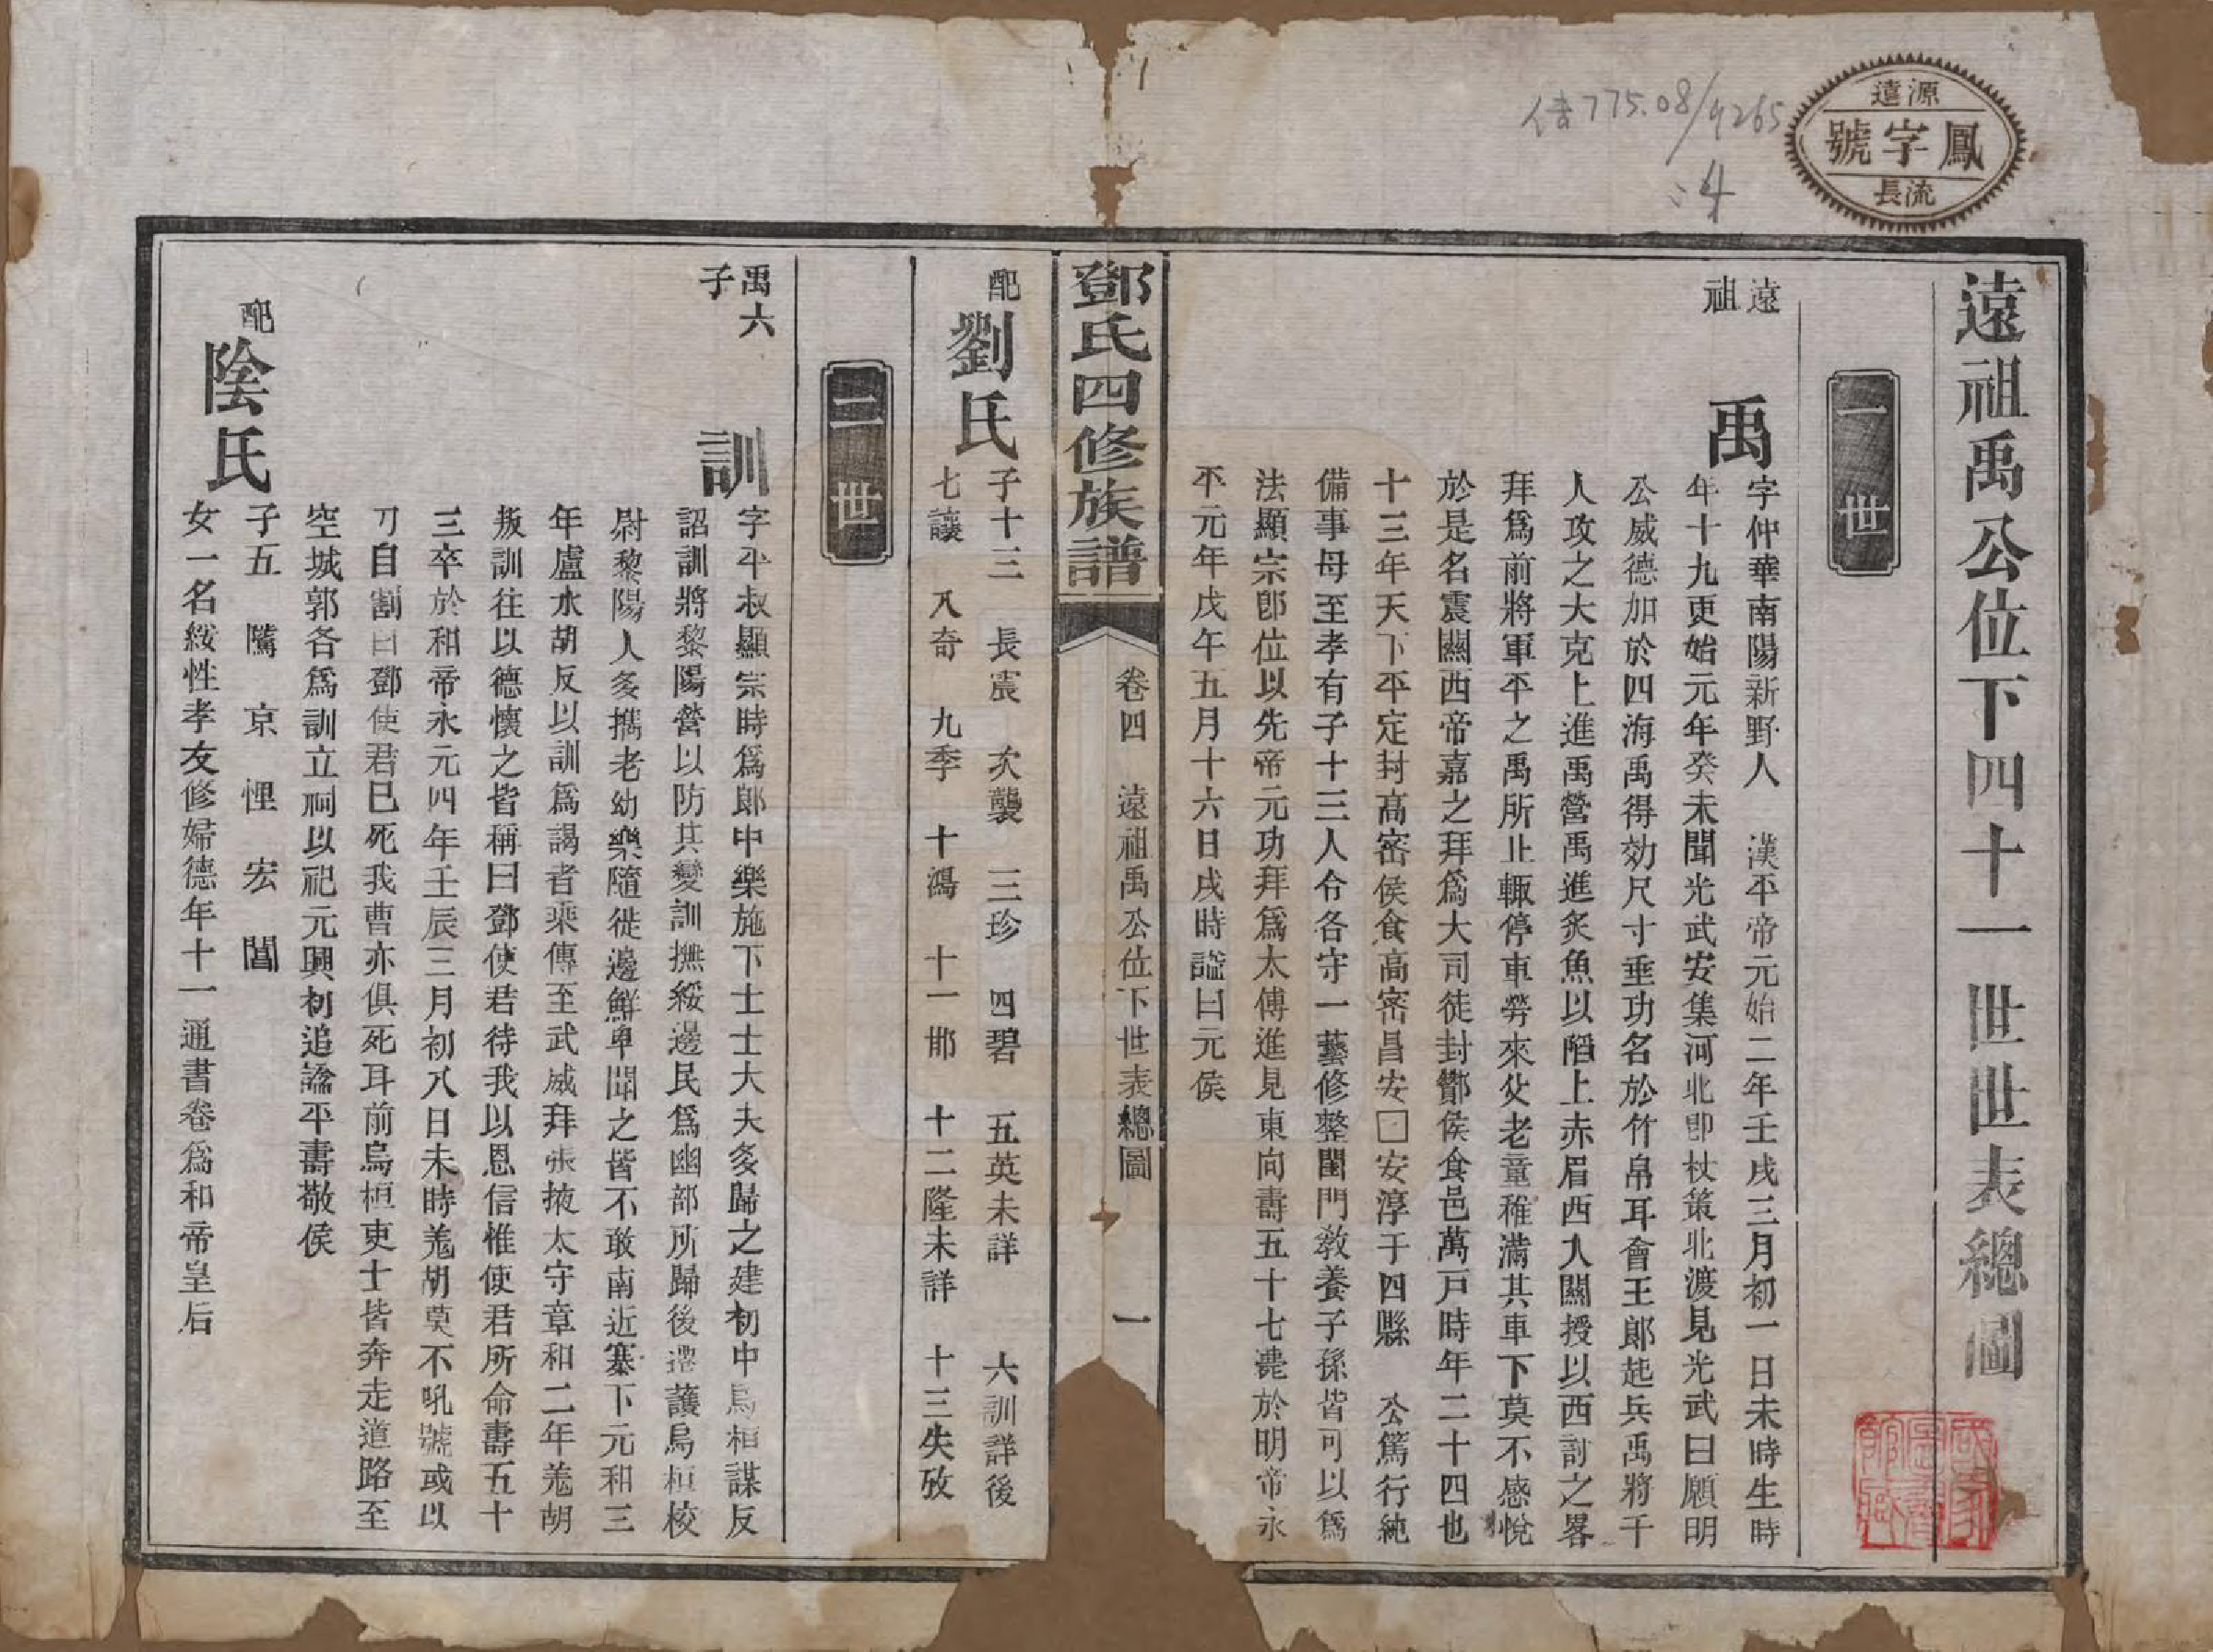 源遠
鳳字號
流長
775.08/9265
:4
遠祖禹公位下四十一世世表總圖
一世
遠祖
禹
字仲華南陽新野人 漢平帝元始二年壬戌三月初一日未時生時
年十九更始元年癸未聞光武安集河北即杖策北渡見光武曰願明
公威德加於四海禹得効尺寸垂功名於竹帛耳會王郎起兵禹將千
人攻之大克上進禹營禹進炙魚以䧟上赤眉西入關授以西討之畧
拜爲前將軍平之禹所止輙停車勞來父老童稚滿其車下莫不感悅
於是名震關西帝嘉之拜爲大司徒封酇侯食邑萬戸時年二十四也
十三年天下平定封高密侯食高密昌安□安淳于四縣 公篤行純
備事母至孝有子十三人令各守一藝修整閨門敎養子孫皆可以爲
法顯宗卽位以先帝元功拜爲太傅進見東向壽五十七薨於明帝永
平元年戊午五月十六日戌時謚曰元侯
鄧氏四修族譜
卷四 遠祖禹公位下世表總圖 一
配
劉氏
子十三 長震 次襲 三珍 四碧 五英未詳 六訓詳後
七讓 八奇 九季 十鴻 十一邯 十二隆未詳 十三失攷
二世
禹六子
訓
字平叔顯宗時爲郎中樂施下士士大夫多歸之建初中烏桓謀反
詔訓將黎陽營以防其變訓撫綏邊民爲幽部所歸後遷護烏桓校
尉黎陽人多攜老幼樂隨徙邊鮮卑聞之皆不敢南近塞下元和三
年盧水胡反以訓爲謁者乘傳至武威拜張掖太守章和二年羗胡
叛訓往以德懷之皆稱曰鄧使君待我以恩信惟使君所命壽五十
三卒於和帝永元四年壬辰三月初八日未時羗胡莫不吼號或以
刀自割曰鄧使君已死我曹亦俱死耳前烏桓吏士皆奔走道路至
空城郭各爲訓立祠以祀元興初追諡平壽敬侯
配
陰氏
子五 隲 京 悝 宏 閶
女一名綏性孝友修婦德年十一通書卷爲和帝皇后